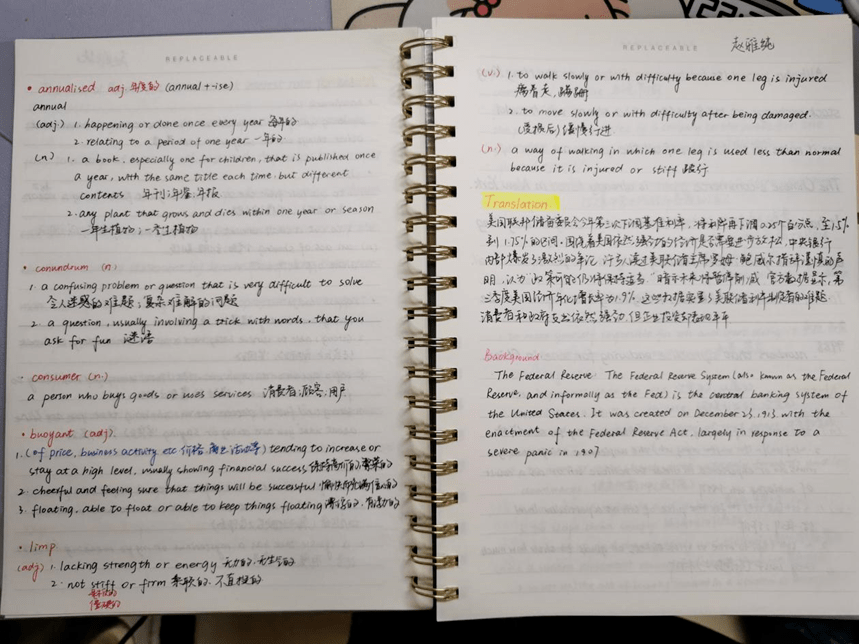 REPLACEABLE
annualised adj. 年度的 (annual + -ise)
annual
(adj.) 1. happening or done once every year 每年的
2. relating to a period of one year 一年的
(n.) 1. a book, especially one for children, that is published once
a year, with the same title each time, but different
contents 年刊;年鉴;年报
2. any plant that grows and dies within one year or season
一年生植物;一季生植物
conundrum (n)
1. a confusing problem or question that is very difficult to solve
令人迷惑的难题;复杂难解的问题
2. a question, usually involving a trick with words, that you
ask for fun 谜语
consumer (n.)
a person who buys goods or uses services 消费者;顾客;用户
buoyant (adj.)
1. (of price, business activity etc 价格、商业活动等) tending to increase or
stay at a high level, usually showing financial success
2. cheerful and feeling sure that things will be successful
3. floating, able to float or able to keep things floating 漂浮的
limp
(adj) 1. lacking strength or energy 无力的
2. not stiff or firm 柔软的、不直挺的
REPLACEABLE
(v.) 1. to walk slowly or with difficulty because one leg is injured
瘸着走,蹒跚
2. to move slowly or with difficulty after being damaged.
(受损后)缓慢行进
(n.) a way of walking in which one leg is used less than normal
because it is injured or stiff 跛行
Translation
美国联邦储备委员会今年第三次下调基准利率,将利率再下调0.25个百分点,至1.5%
到1.75%的区间,围绕着美国依然强劲的经济是否需要进一步放松,中央银行
内部爆发了激烈的争论
明,认为
三季度美国经济年化增长率为1.9%,
消费者和政府支出依然强劲,但企业投资
Background.
The Federal Reserve The Federal Reserve System (also known as the Federal
Reserve, and informally as the Fed) is the central banking system of
the United States. It was created on December 23, 1913, with the
enactment of the Federal Reserve Act, largely in response to a
severe panic in 1907